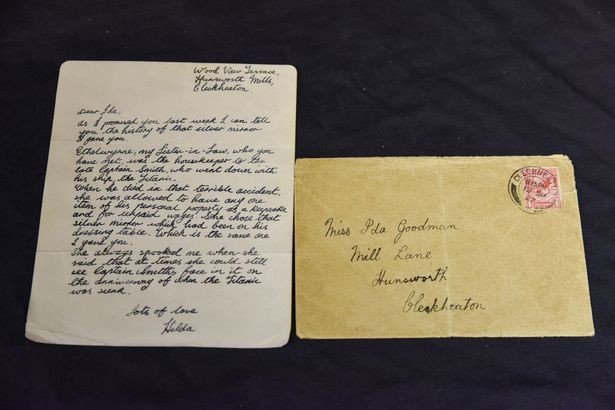 Wood View Terrace,
Hunsworth Mills,
Cleckheaton.
Dear Ida,
As I promised you last week I can tell
you the history of that silver mirror
I gave you.
Ethelwynne, my Sister-in-Law, who you
have met, was the housekeeper to the
late Captain Smith, who went down with
his ship the Titanic.
When he died in that terrible accident,
she was allowed to have any one
item of his personal property as a keepsake
and for unpaid wages. She chose that
silver mirror which had been on his
dressing table. Which is the same one
I gave you.
She always spooked me when she
said that at times she could still
see Captain Smiths face in it on
the anniversary of when the Titanic
was sunk.
Lots of love
Hilda
CLECKHEA
Miss Ida Goodman
Mill Lane
Hunsworth
Cleckheaton